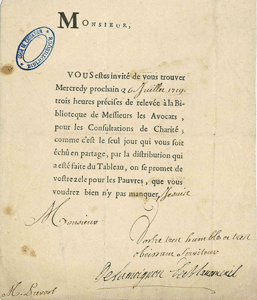 MONSIEUR,
VOUS estes invité de vous trouver
Mercredy prochain 26 Juillet 1719
trois heures précises de relevée à la Bi-
blioteque de Messieurs les Avocats,
pour les Consultations de Charité;
comme c'est le seul jour qui vous soit
échû en partage, par la distribution qui
a esté faite du Tableau, on se promet de
vostre zele pour les Pauvres, que vous
voudrez bien n'y pas manquer,
Monsieur
Vostre tres humble et tres
obeissant serviteur